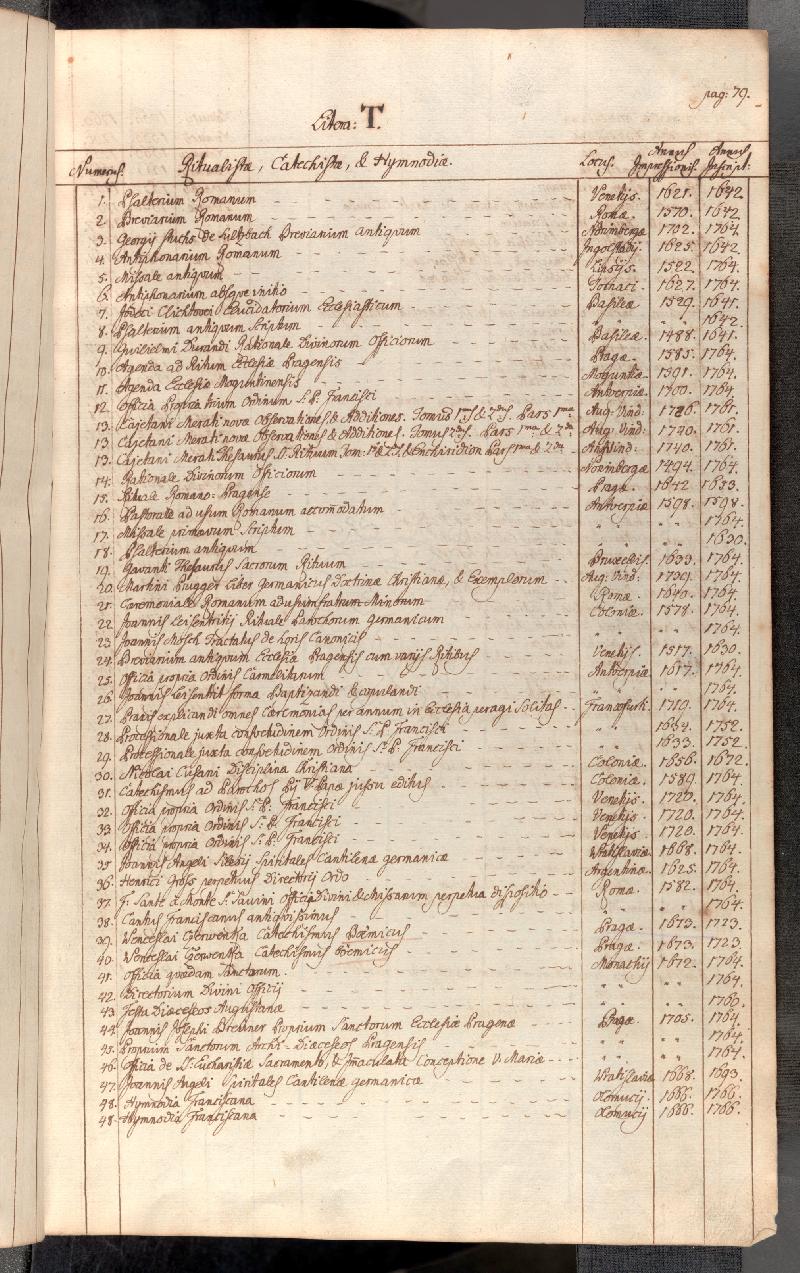 pag: 79.
Litera: T.
Numerus. Ritualistæ, Catechistæ, & Hymnodiæ. Locus. Annus Impressionis. Annus Inscript:
1. Psalterium Romanum Venetijs. 1621. 1642.
2. Breviarium Romanum Romæ. 1570. 1642.
3. Georgij Stuchs de Sultzbach Breviarium antiquum Norimbergæ 1702. 1764.
4. Antiphonarium Romanum Ingolstadij. 1625. 1642.
5. Missale antiquum 1522. 1764.
6. Antiphonarium absque initio Tornaci. 1627. 1764.
7. Jodoci Clichtovei Elucidatorium Ecclesiasticum Basileæ 1529. 1641.
8. Psalterium antiquum Scriptum " " 1642.
9. Guilielmi Durandi Rationale Divinorum Officiorum Basileæ. 1488. 1641.
10. Agenda ad Ritum Ecclesiæ Pragensis Pragæ. 1585. 1764.
11. Agenda Ecclesiæ Moguntinensis Moguntiæ. 1591. 1764.
12. Officia Propria trium Ordinum S. P. Francisci Antverpiæ. 1700. 1764.
13. Cajetani Merati novæ Observationes & Additiones. Tomus 1us & 2dus. Pars 1ma Aug: Vind: 1726. 1761.
13. Cajetani Merati novæ Observationes & Additiones. Tomus 2dus. Pars 1ma & 2da Aug: Vind: 1740. 1761.
13. Cajetani Merati Thesaurus S. Rituum Tom: & Enchiridion Pars 1ma & 2da Aug: Vind: 1740. 1761.
14. Rationale Divinorum Officiorum Norimbergæ 1494. 1764.
15. Rituale Romano-Pragense Pragæ 1642 1683.
16. Pastorale ad usum Romanum accomodatum Antverpiæ 1598. 1598.
17. Missale primævum Scriptum " " 1764.
18. Psalterium antiquum " " 1630.
19. Gavanti Thesaurus Sacrorum Rituum Bruxellis. 1633. 1764.
20. Martini Prugger Liber Germanicus Doctrinæ Christianæ, & Exemplorum Aug: Vind: 1739. 1764.
21. Ceremoniale Romanum ad usum fratrum Minorum Romæ. 1640. 1764.
22. Joannis Leisentritij Rituale Parochorum germanicum Coloniæ. 1578. 1764.
23. Joannis Mösch Tractatus de Horis Canonicis " " 1764.
24. Breviarium antiquum Ecclesiæ Pragensis cum varijs Ritibus Venetijs. 1517. 1630.
25. Officia propria Ordinis Carmelitarum Antverpiæ 1617. 1764.
26. Joannis Leisentrit forma Baptizandi & copulandi " " 1764.
27. Praxis explicandi omnes Cæremonias per annum in Ecclesia peragi Solitas Francofurti. 1719. 1764.
28. Processionale juxta consvetudinem Ordinis S. P. Francisci " " 1634. 1752.
29. Processionale juxta consvetudinem Ordinis S. P. Francisci " " 1633. 1752.
30. Nicolai Cusani Disciplina Christiana Coloniæ. 1656. 1672.
31. Catechismus ad Parochos Pij V. Papæ jussu editus Coloniæ. 1589. 1764.
32. Officia propria Ordinis S. P. Francisci Venetijs. 1720. 1764.
33. Officia propria Ordinis S. P. Francisci Venetijs. 1720. 1764.
34. Officia propria Ordinis S. P. Francisci Venetijs. 1720. 1764.
35. Joannis Angeli Silesij Spiritales Cantilenæ germanicæ Wratislaviæ. 1668. 1764.
36. Henrici Gross perpetuus Directorij Ordo Argentinæ. 1625. 1764.
37. F. Sante à Monte S. Savini Officij Divini & Missarum perpetua dispositio Romæ. 1582. 1764.
38. Cantus Franciscanus antiquissimus " " 1764.
39. Wenceslai Czerwenka Catechismus Boemicus Pragæ. 1673. 1723.
40. Wenceslai Czerwenka Catechismus Boemicus Pragæ. 1673. 1723.
41. Officia quædam Sanctorum. Monachij 1672. 1764.
42. Directorium Divini Officij " " 1764.
43. Festa Diœceseos Augustanæ " " 1760.
44. Joannis Stephi Brenner Proprium Sanctorum Ecclesiæ Pragenæ Pragæ 1705. 1764.
45. Proprium Sanctorum Archi-Diœceseos Pragensis " " 1764.
46. Officia de SS. Eucharistiæ Sacramento, & Immaculata Conceptione V. Mariæ " " 1764.
47. Joannis Angeli Spiritales Cantilenæ germanicæ Wratislaviæ 1668. 1693.
48. Hymnodia Franciscana Olomucij 1666. 1766.
48. Hymnodia Franciscana Olomucij 1666. 1766.